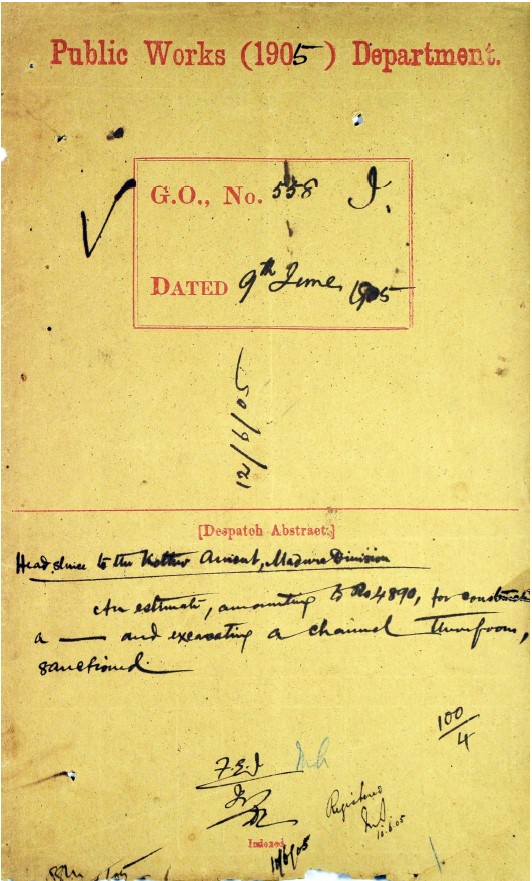 Public Works (1905) Department.
G.O., No. 558 I.
DATED 9th June, 1905
12/6/05
[Despatch Abstract.]
Head sluice to the Anicut, Madura Division
An estimate, amounting to Rs 4890, for
a — and excavating a channel therefrom,
sanctioned.
100/4
Registered
10.6.05
Indexed
10/6/05